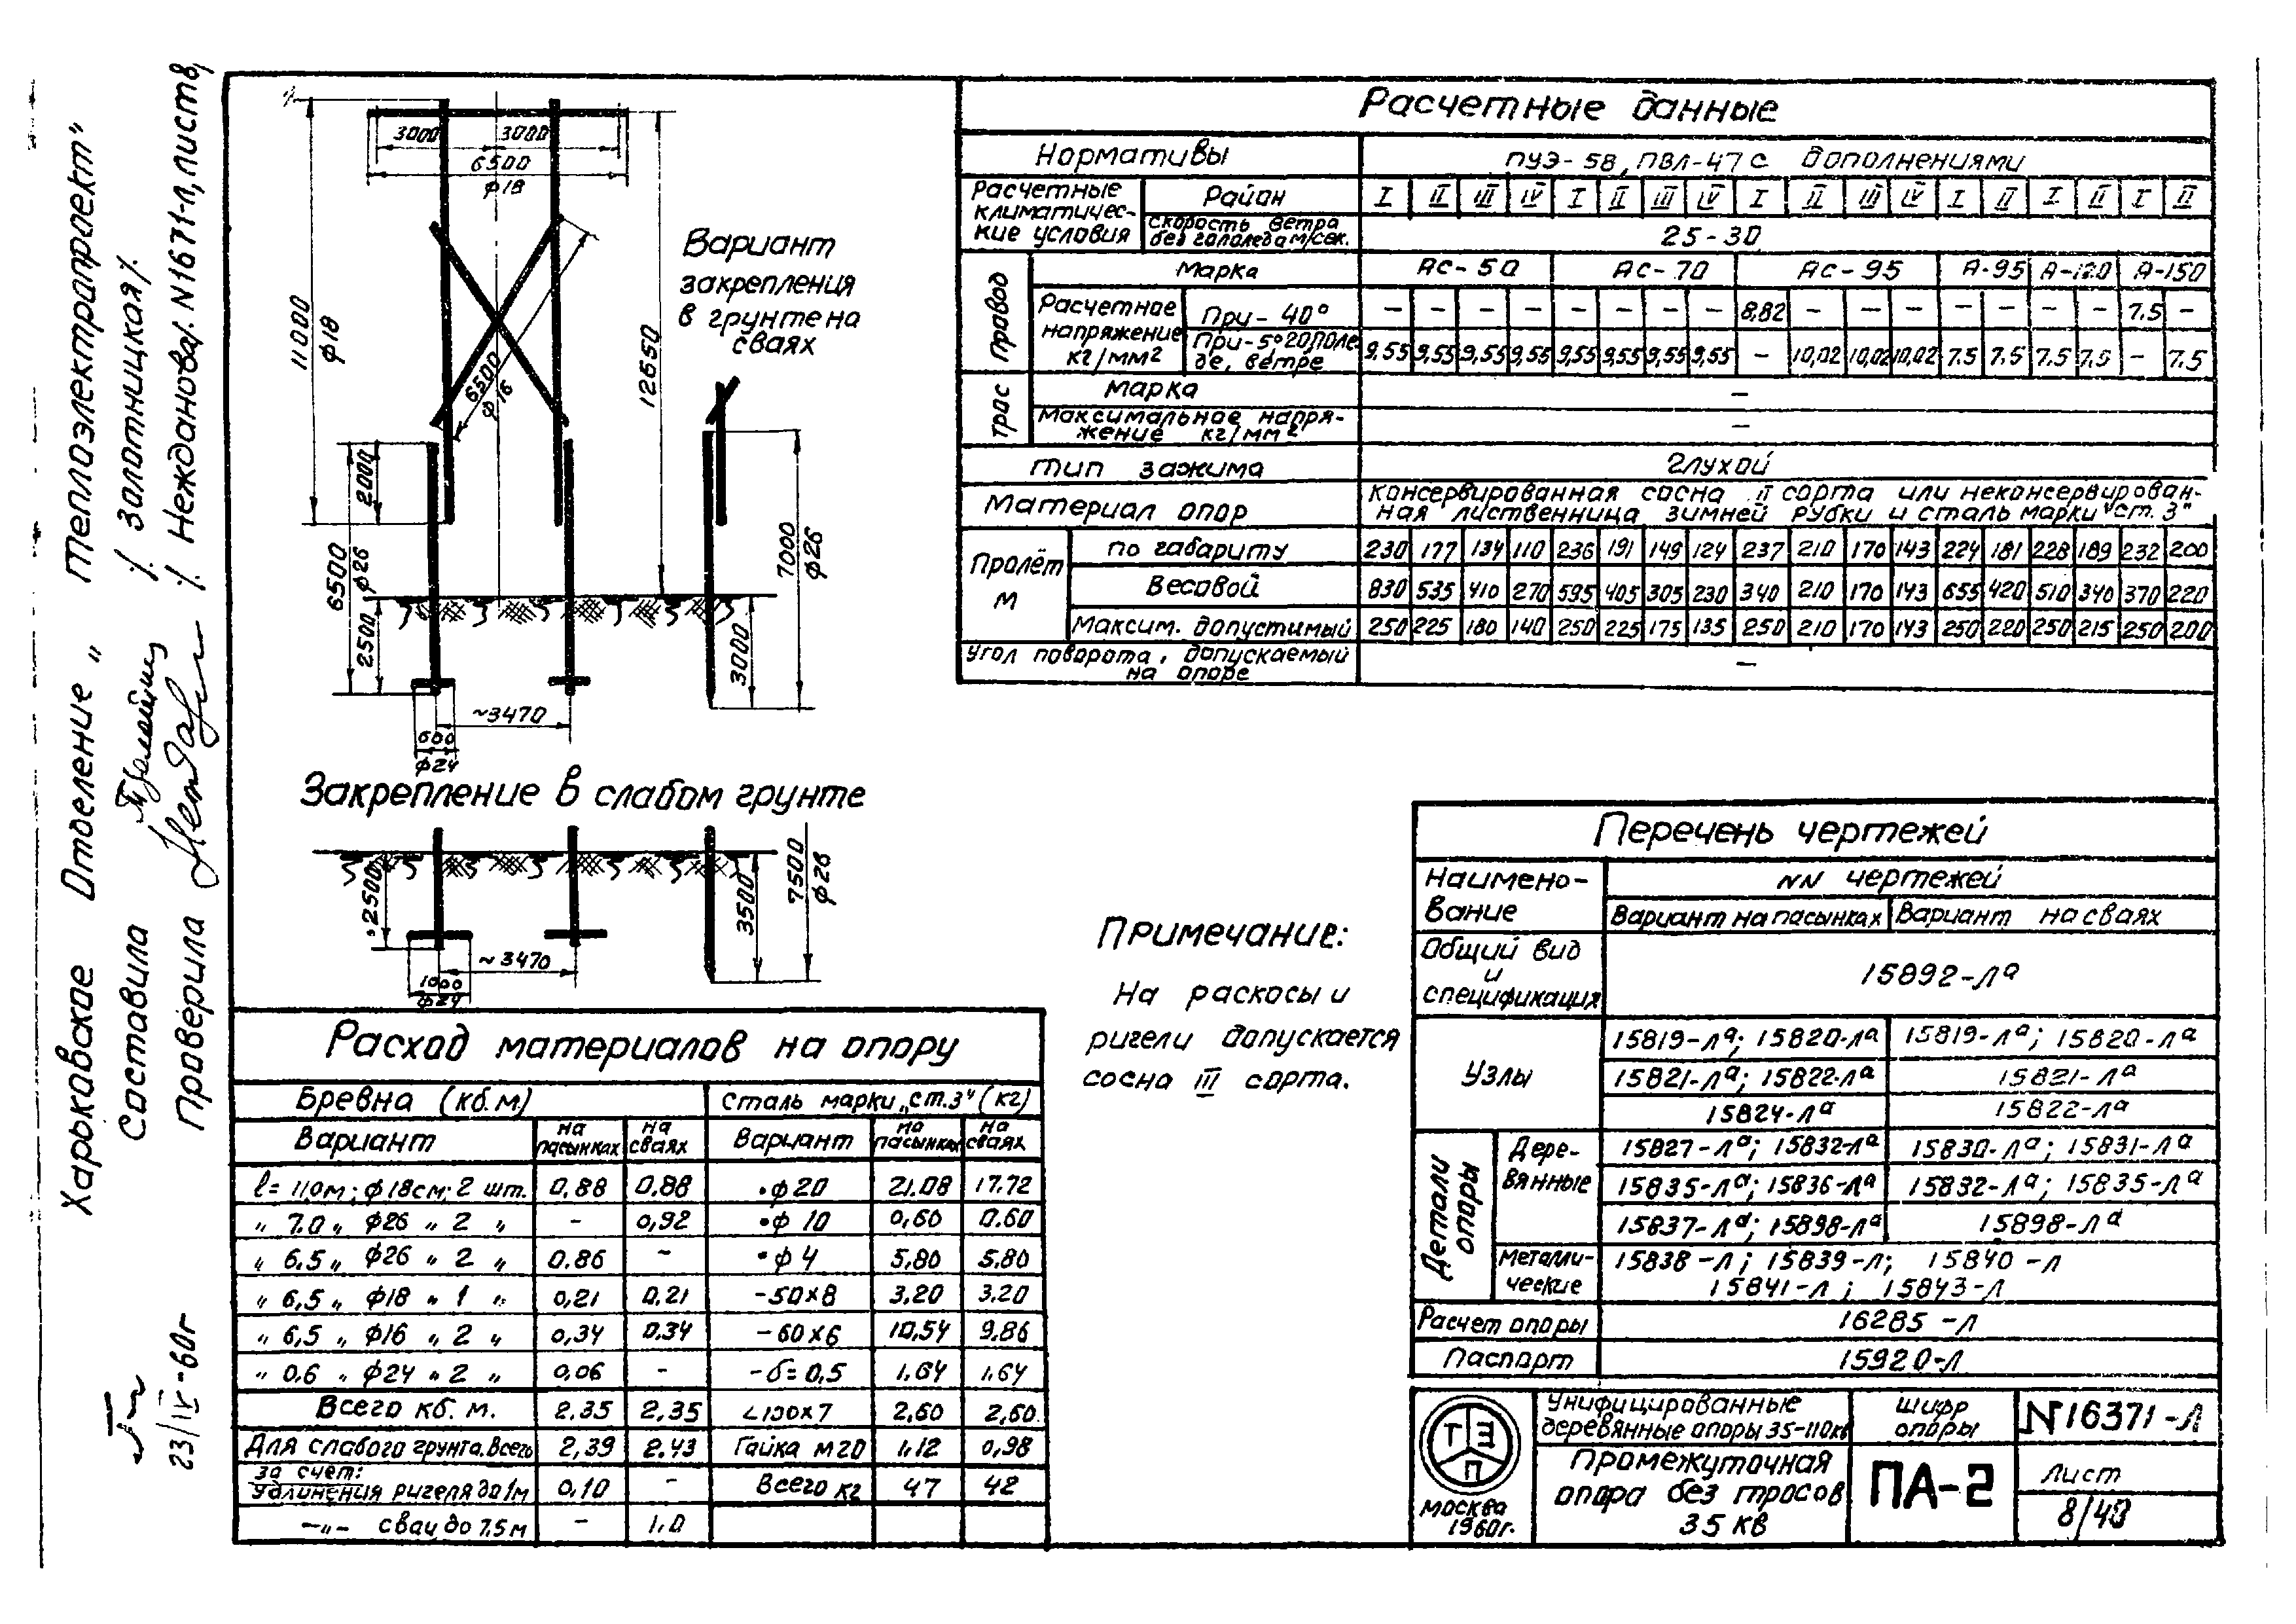 Харьковское Отделение „Теплоэлектропроект"
Составила /. Золотницкая /.
Проверила /. Неждановa /. N16371-Л, лист 8,
23/IV-60г
3000 3000
6500
ф18
11000
ф18
6500
ф16
12650
Вариант
закрепления
в грунте на
сваях
2000
6500
ф26
2500
7000
ф26
3000
~3470
600
ф24
Закрепление в слабом грунте
2500
~3470
1000
ф24
3500
7500
ф26
Расчетные данные
Нормативы ПУЭ-58, ПВЛ-47 с дополнениями
Расчетные климатичес-кие условия
Район I II III IV I II III IV I II III IV I II I II I II
Скорость ветра без гололеда м/сек. 25-30
Провод
Марка АС-50 АС-70 АС-95 А-95 А-120 А-150
Расчетное напряжение кг/мм2
При -40° – – – – – – – – 8,82 – – – – – – – 7.5 –
При -5° гололе де, ветре 9,55 9,55 9,55 9,55 9,55 9,55 9,55 9,55 – 10,02 10,02 10,02 7.5 7.5 7.5 7.5 – 7.5
Трос
Марка –
Максимальное напря-жение кг/мм2 –
Тип зажима Глухой
Материал опор Консервированная сосна II сорта или неконсервирован-
ная лиственница зимней рубки и сталь марки „ст. 3"
Пролёт м
по габариту 230 177 134 110 236 191 149 124 237 210 170 143 224 181 228 189 232 200
Весовой 830 535 410 270 595 405 305 230 340 210 170 143 655 420 510 340 370 220
Максим. допустимый 250 225 180 140 250 225 175 135 250 210 170 143 250 220 250 215 250 200
Угол поворота, допускаемый на опоре –
Примечание:
На раскосы и
ригели допускается
сосна III сорта.
Расход материалов на опору
Бревна (кб.м) Сталь марки „ст.3" (кг)
Вариант на пасынках на сваях Вариант на пасынках на сваях
ℓ= 11,0м; ф18см; 2 шт. 0,88 0,88 •ф20 21.08 17.72
„ 7.0 „ ф26 „ 2 „ – 0,92 •ф 10 0,60 0.60
„ 6.5 „ ф26 „ 2 „ 0.86 – •ф 4 5,80 5.80
„ 6,5 „ ф18 „ 1 „ 0,21 0.21 -50×8 3,20 3.20
„ 6,5 „ ф16 „ 2 „ 0,34 0.34 -60×6 10,54 9.86
„ 0.6 „ ф24 „ 2 „ 0,06 – -δ=0,5 1,64 1,64
Всего кб. м. 2.35 2,35 ∠100×7 2,60 2,60
Для слабого грунта. Всего 2,39 2.43 Гайка М20 1,12 0,98
за счет:
удлинения ригеля до 1м 0,10 – Всего кг 47 42
–„– сваи до 7,5 м – 1,0
Перечень чертежей
Наимено-вание NN чертежей
Вариант на пасынках Вариант на сваях
Общий вид и спецификация 15892-Лª
Узлы 15819-Лª; 15820-Лª 15819-Лª; 15820-Лª
15821-Лª; 15822-Лª 15821-Лª
15824-Лª 15822-Лª
Детали опоры
Дере-вянные 15827-Лª; 15832-Лª 15830-Лª; 15831-Лª
15835-Лª; 15836-Лª 15832-Лª; 15835-Лª
15837-Лª; 15898-Лª 15898-Лª
Металли-ческие 15838-Л; 15839-Л; 15840-Л
15841-Л; 15843-Л
Расчет опоры 16285-Л
Паспорт 15920-Л
ТЭП
Москва
1960г.
Унифицированные
деревянные опоры 35-110кв
Промежуточная
опора без тросов
35 кв
Шифр
опоры
ПА-2
N16371-Л
Лист
8/43